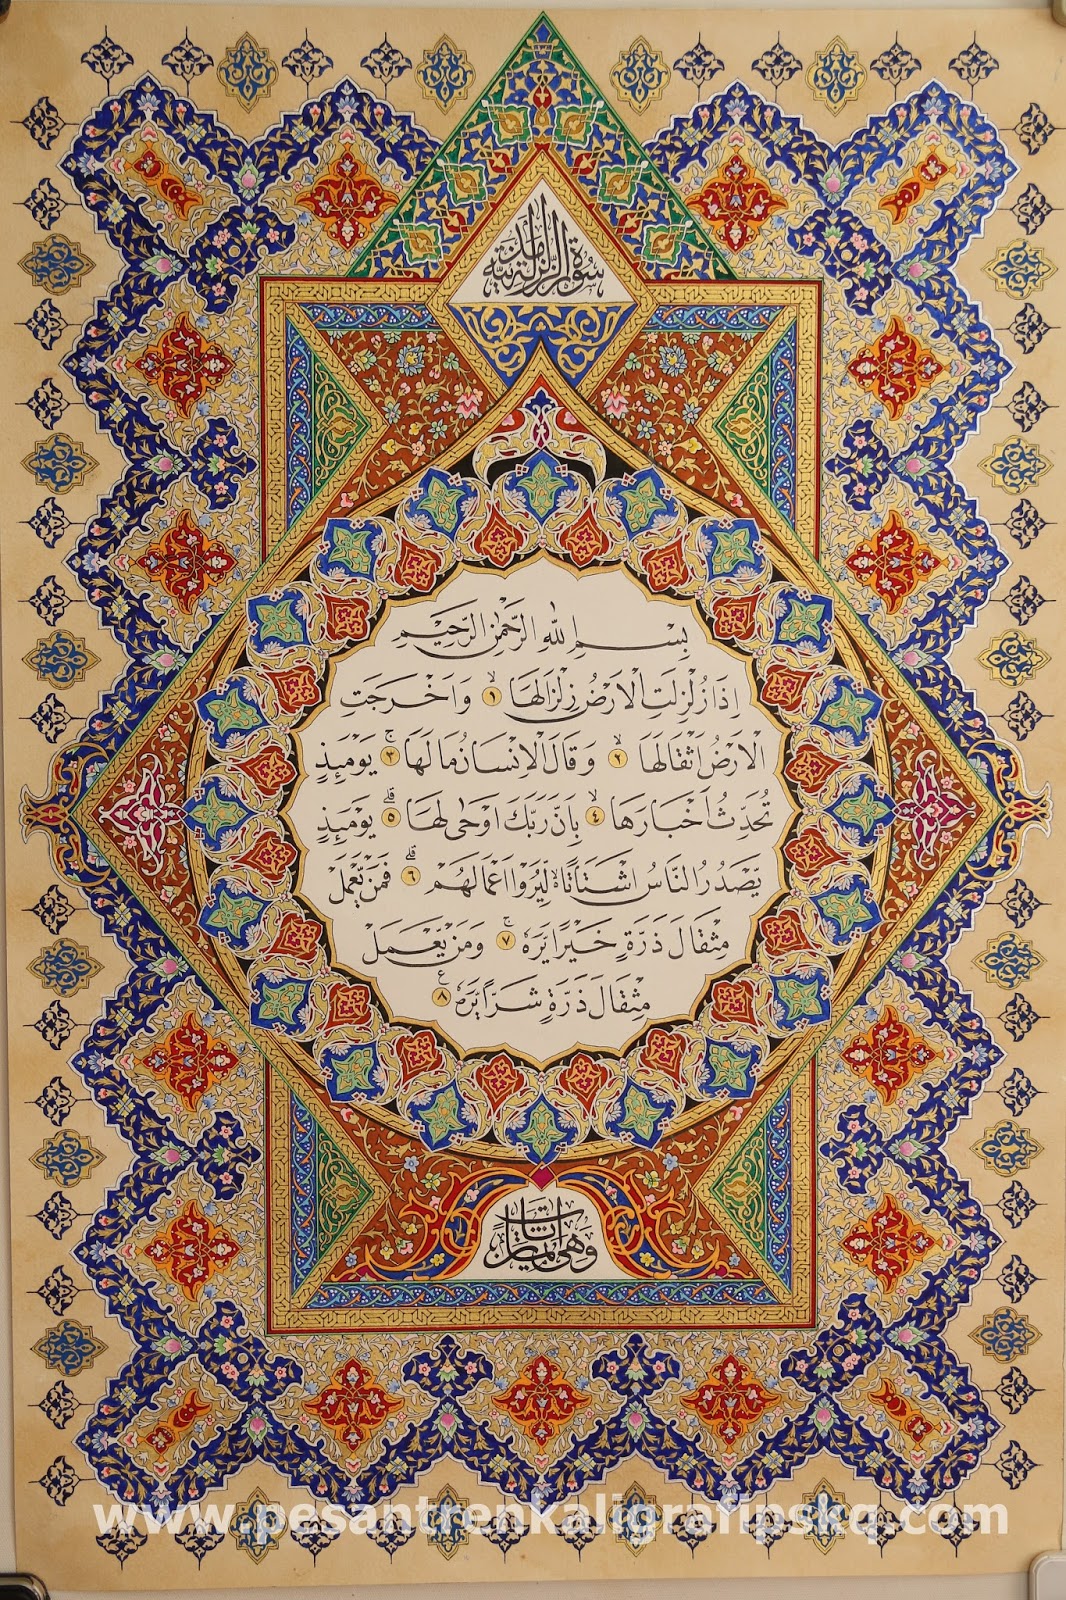 سُورَةُ مَدَنِيَّة
بِسْمِ اللهِ الرَّحْمٰنِ الرَّحِيْمِ
اِذَا زُلْزِلَتِ الْاَرْضُ زِلْزَالَهَا ۙ ١ وَاَخْرَجَتِ
الْاَرْضُ اَثْقَالَهَا ۙ ٢ وَقَالَ الْاِنْسَانُ مَا لَهَا ۚ ٣ يَوْمَئِذٍ
تُحَدِّثُ اَخْبَارَهَا ۙ ٤ بِاَنَّ رَبَّكَ اَوْحٰى لَهَا ۗ ٥ يَوْمَئِذٍ
يَّصْدُرُ النَّاسُ اَشْتَاتًا ەۙ لِّيُرَوْا اَعْمَالَهُمْ ۗ ٦ فَمَنْ يَّعْمَلْ
مِثْقَالَ ذَرَّةٍ خَيْرًا يَّرَهٗ ۚ ٧ وَمَنْ يَّعْمَلْ
مِثْقَالَ ذَرَّةٍ شَرًّا يَّرَهٗ ࣖ ٨
وَهِيَ ثَمَان آيَات
www.pesantrenkaligrafipskq.com